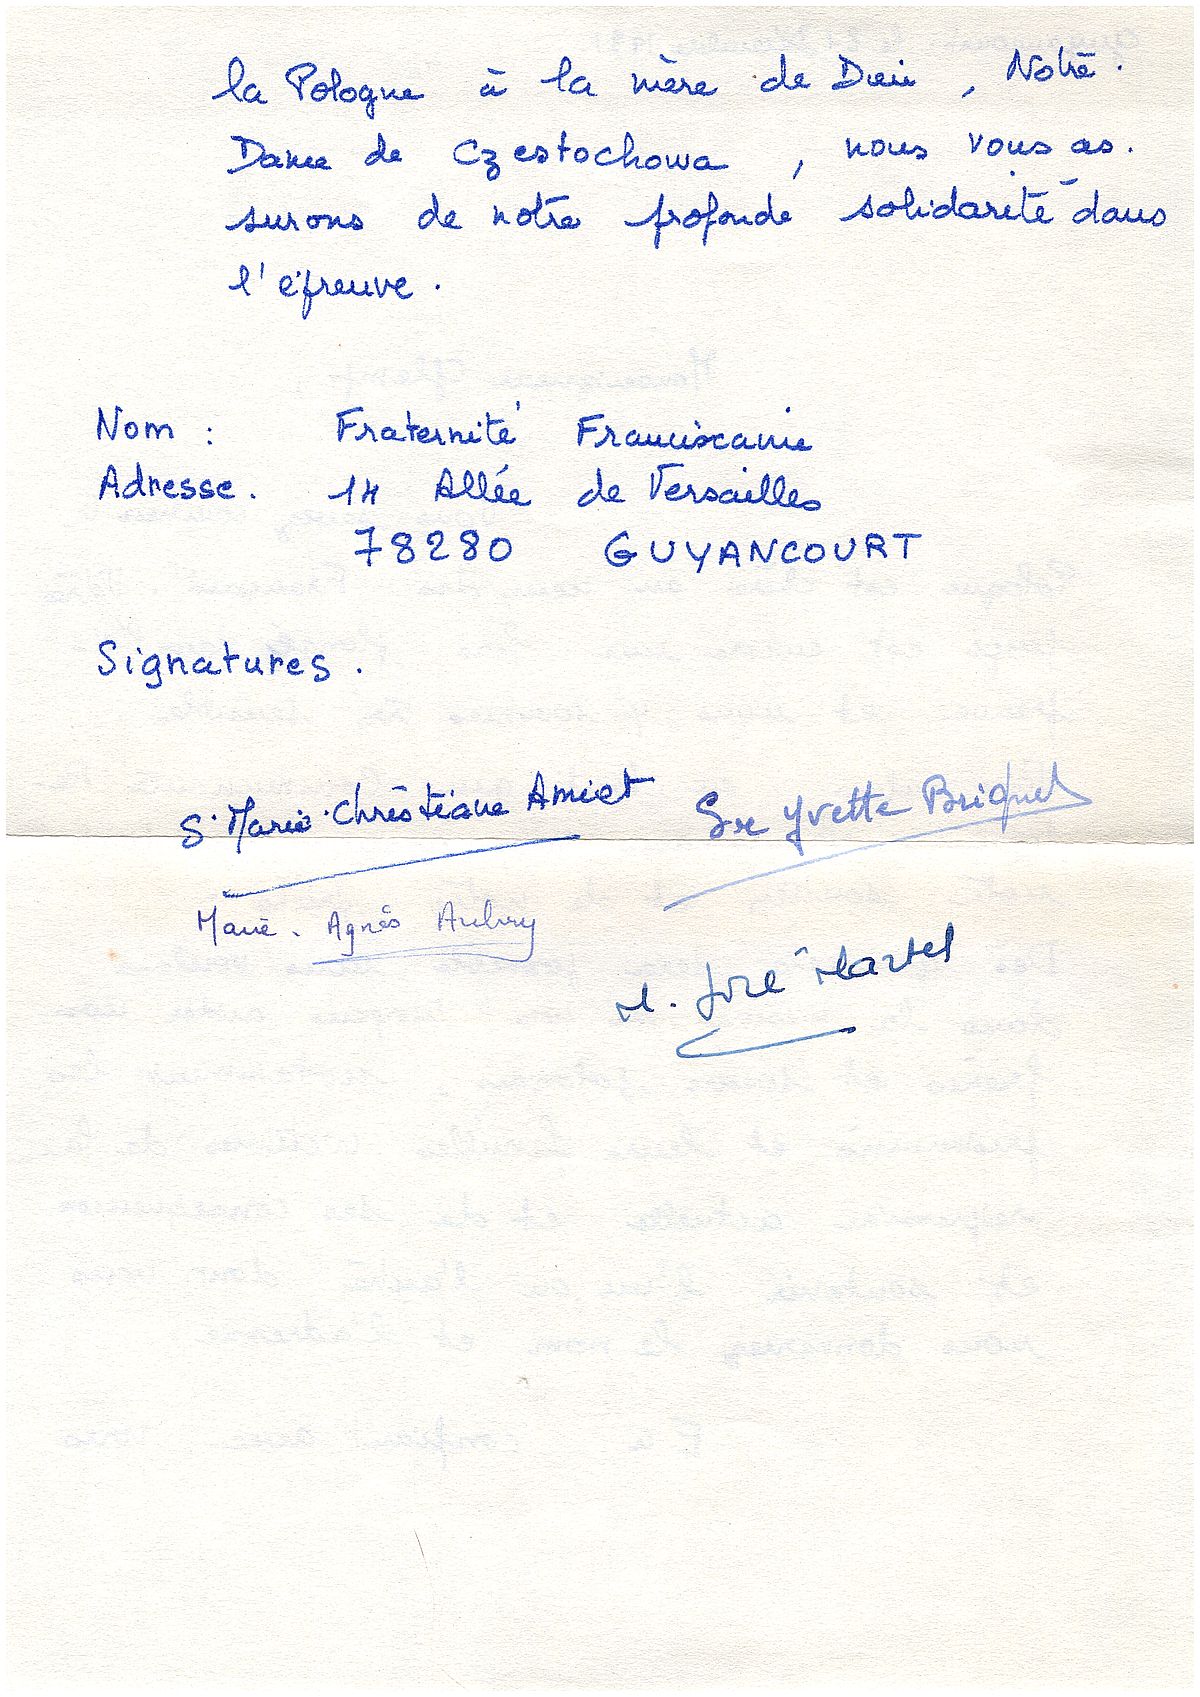 la Pologne à la mère de Dieu, Notre-
Dame de Czestochowa, nous vous as-
surons de notre profonde solidarité dans
l'épreuve.
Nom : Fraternité Franciscaine
Adresse. 14 Allée de Versailles
78280 GUYANCOURT
Signatures.
S. Marie-Christiane Amiet
Sr Yvette Briquet
Marie-Agnès Aubry
M. José Martel